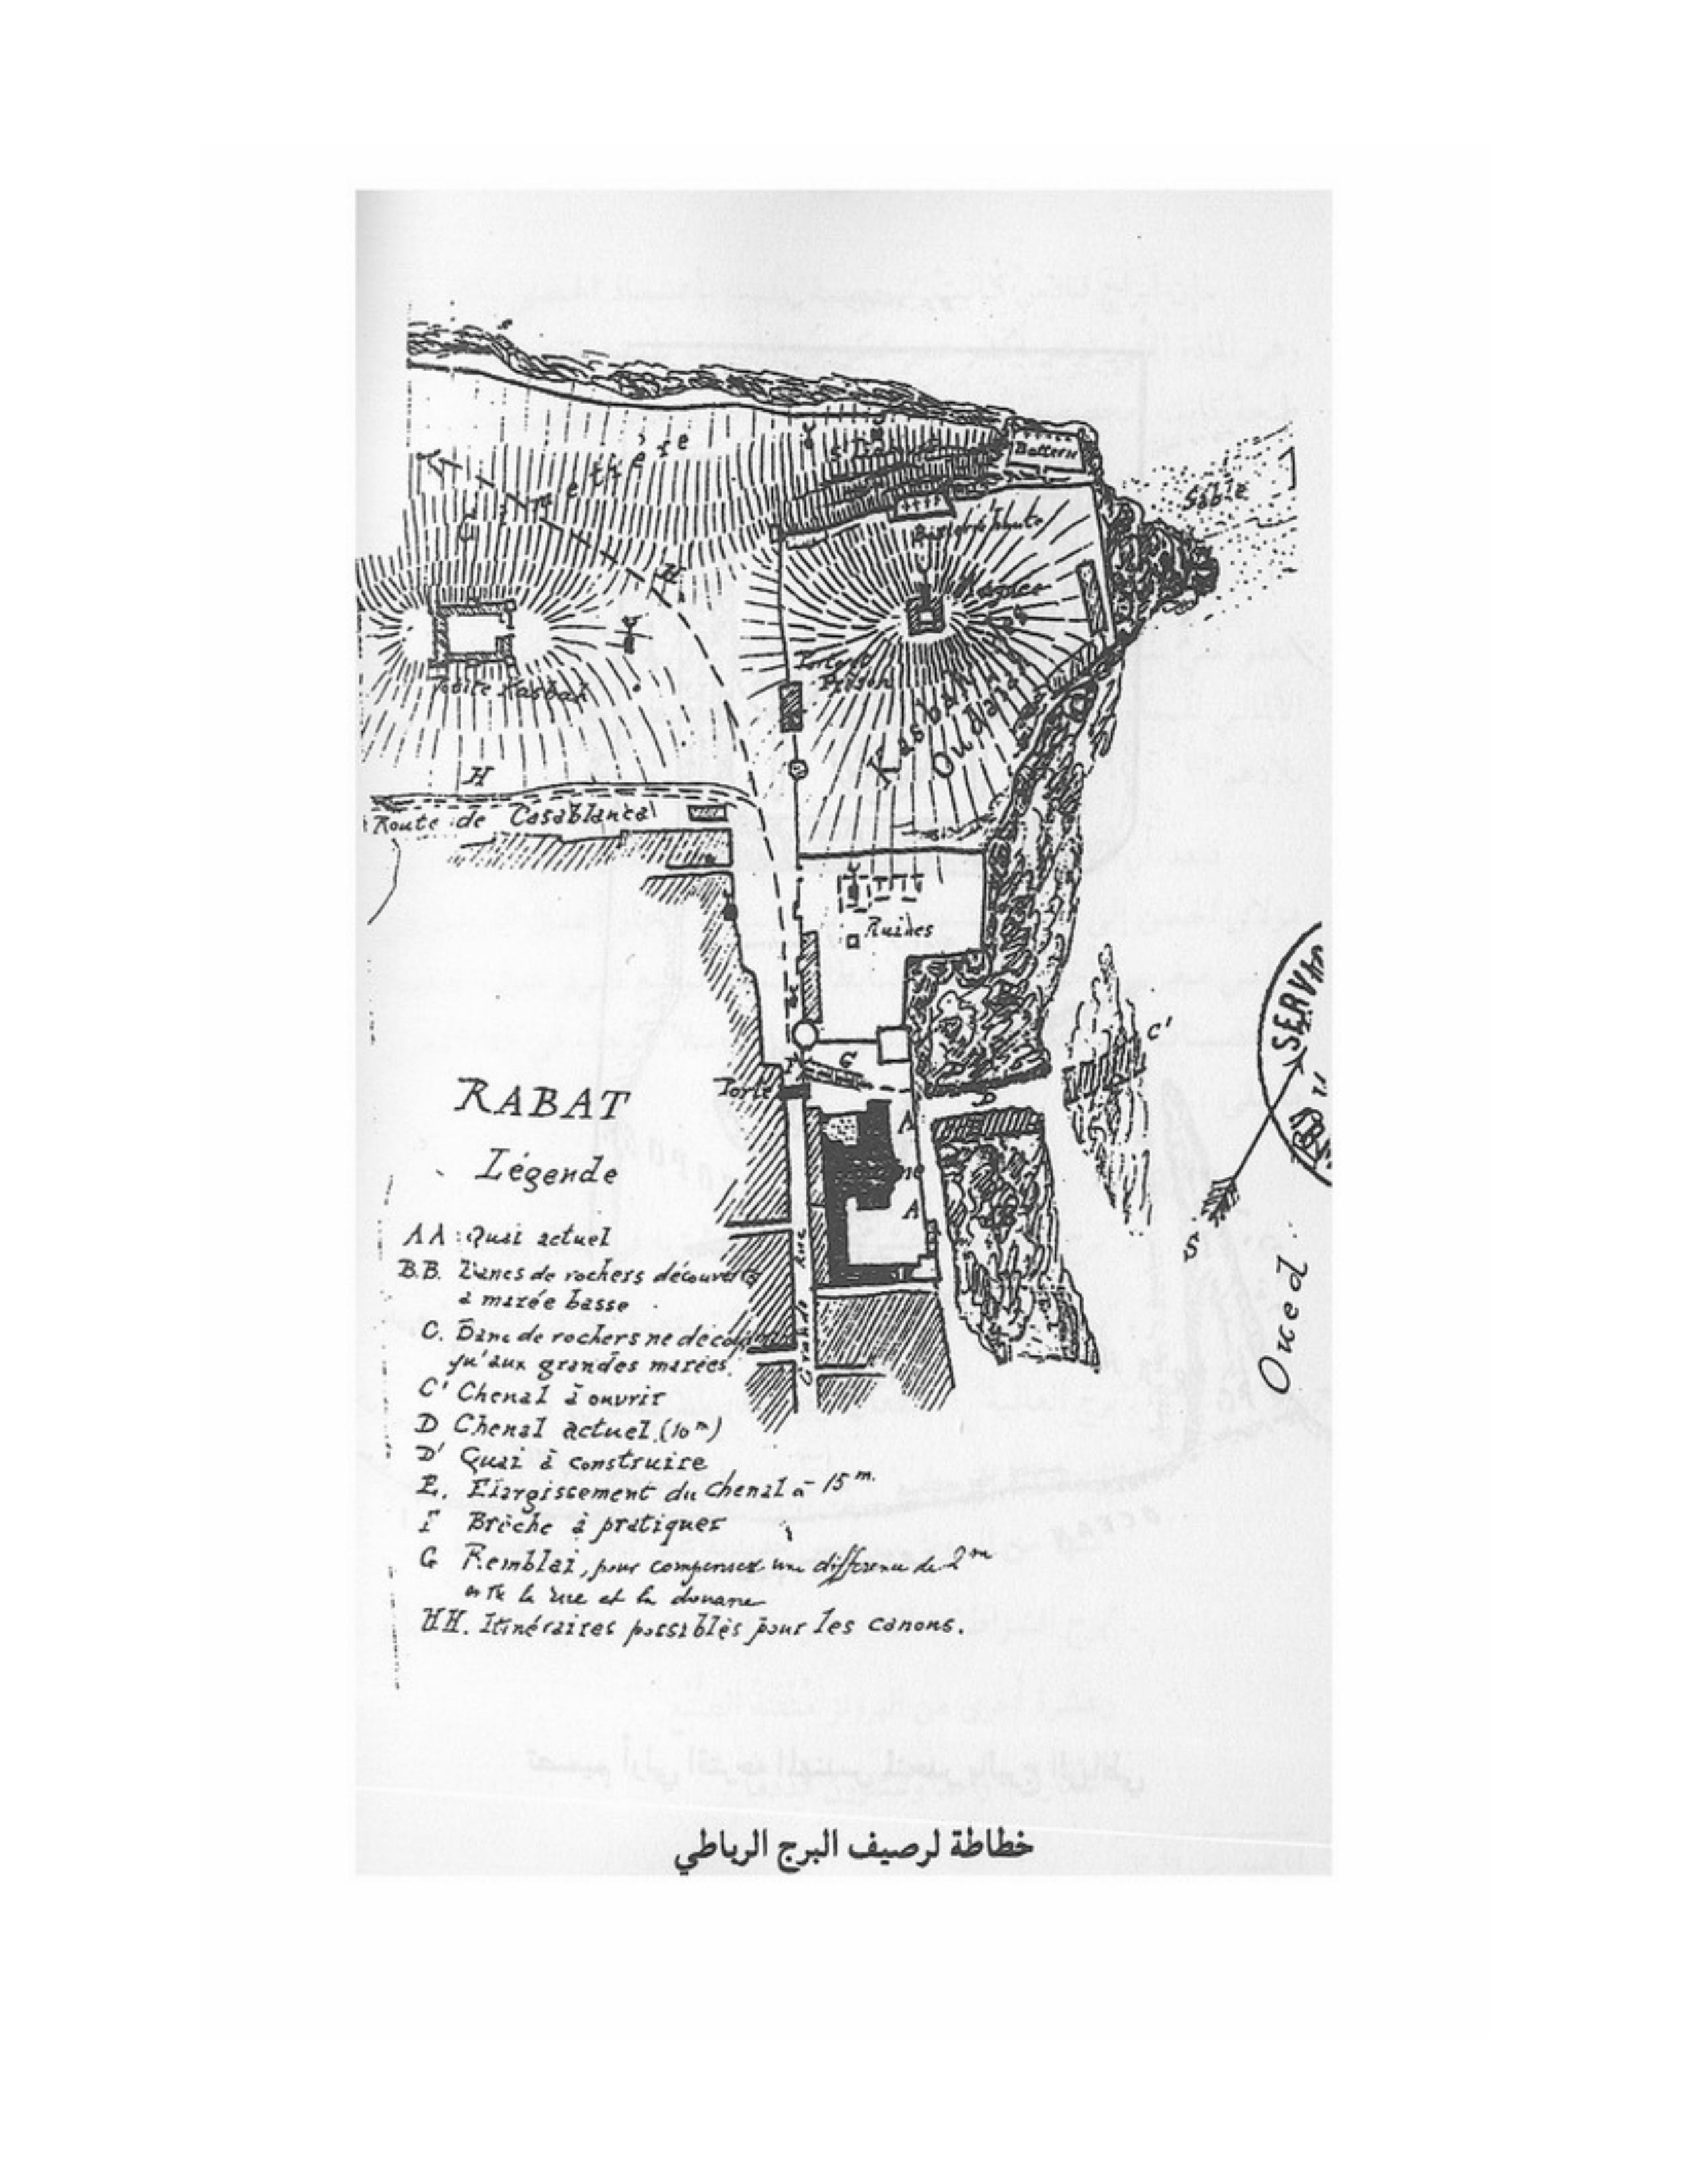 Batterie
Sable
Batterie haute
H
Petite Kasbah
Kasbah
Oudaia
H
Route de Casablanca
Ruines
C'
SERV
G
Porte
D
A
A
S
Oued
Grande Rue
RABAT
Légende
AA: Quai actuel
B.B. Bancs de rochers découverts
à marée basse
C. Banc de rochers ne
qu'aux grandes marées
C' Chenal à ouvrir
D Chenal actuel (10m)
D' Quai à construire
E. Elargissement du chenal à 15m.
F Brèche à pratiquer
G Remblai, pour compenser une différence de 2m
entre la rue et la douane
HH. Itinéraires possibles pour les canons.
خطاطة لرصيف البرج الرباطي